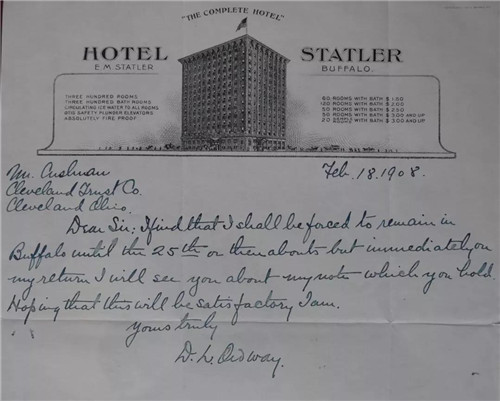 "THE COMPLETE HOTEL"
HOTEL STATLER
E.M. STATLER BUFFALO.
THREE HUNDRED ROOMS
THREE HUNDRED BATH ROOMS
CIRCULATING ICE WATER TO ALL ROOMS
SAFETY PLUNGER ELEVATORS
ABSOLUTELY FIRE PROOF
60 ROOMS WITH BATH $1.50
120 ROOMS WITH BATH $2.00
50 ROOMS WITH BATH $2.50
50 ROOMS WITH BATH $3.00 AND UP
20 ROOMS WITH BATH $3.00 AND UP
Feb. 18. 1908.
Mr. Cushman
Cleveland Trust Co.
Cleveland Ohio.
Dear Sir; I find that I shall be forced to remain in
Buffalo until the 25th or thenabouts but immediately on
my return I will see you about my note which you hold.
Hoping that this will be satisfactory I am.
Yours truly
D. L. Ordway.